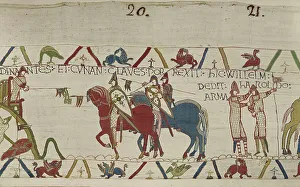 20. 21.
DINANTES : ET : CVNAN : CLAVES : PORREXIT : HIC : WILLELM :
DEDIT : HAROLDO :
ARMA